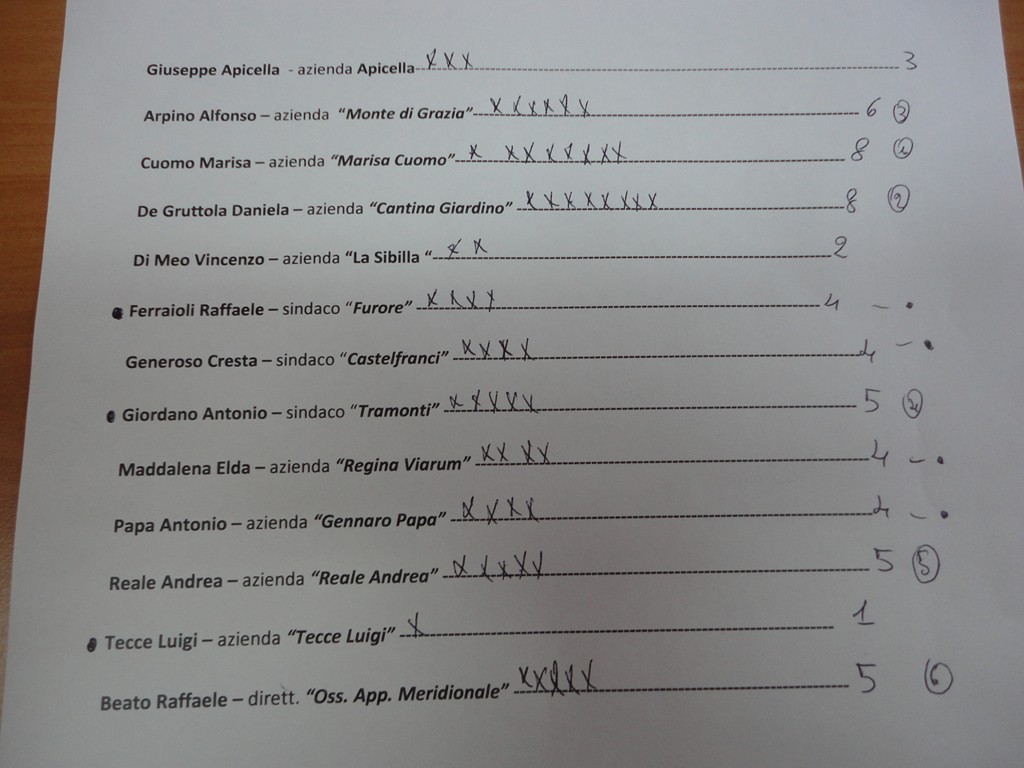 Giuseppe Apicella - azienda Apicella XXX 3
Arpino Alfonso – azienda "Monte di Grazia" XXXXXX 6 3
Cuomo Marisa – azienda "Marisa Cuomo" X XXXXXXX 8 1
De Gruttola Daniela – azienda "Cantina Giardino" XXXXXXXX 8 2
Di Meo Vincenzo – azienda "La Sibilla " X X 2
Ferraioli Raffaele – sindaco "Furore" XXXX 4 – •
Generoso Cresta – sindaco "Castelfranci" XXXX 4 – •
Giordano Antonio – sindaco "Tramonti" XXXXX 5
Maddalena Elda – azienda "Regina Viarum" XX XX 4 – •
Papa Antonio – azienda "Gennaro Papa" XXXX 4 – •
Reale Andrea – azienda "Reale Andrea" XXXXX 5 5
Tecce Luigi – azienda "Tecce Luigi" X 1
Beato Raffaele – dirett. "Oss. App. Meridionale" XXXXX 5 6